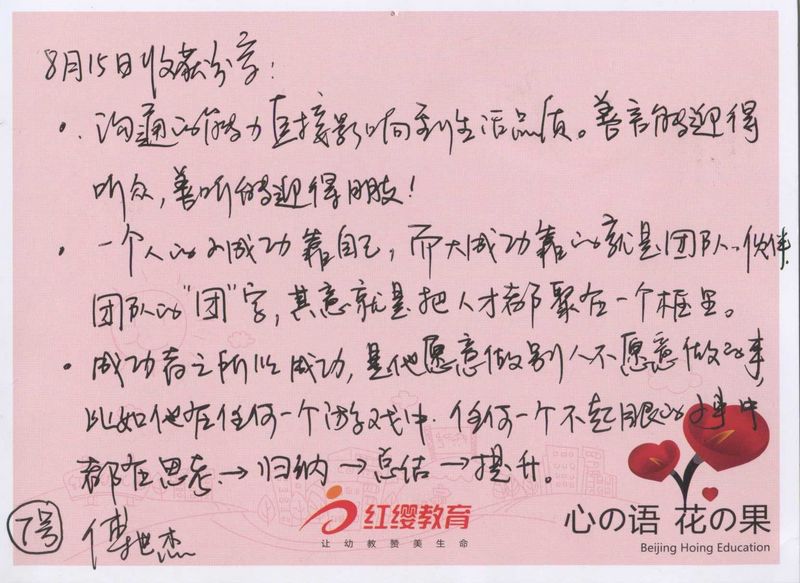 8月15日收获分享：
·. 沟通的能力直接影响到生活品质。善言能迎得
听众，善听能迎得朋友！
· 一个人的小成功靠自己，而大成功靠的就是团队、伙伴
团队的“团”字，其意就是把人才都聚在一个框里。
· 成功者之所以成功，是他愿意做别人不愿意做的事，
比如他在任何一个游戏中. 任何一个不起眼的事中
都在思考→归纳→总结→提升。
7号 傅世杰
红缨教育
让幼教赞美生命
心の语 花の果
Beijing Hoing Education